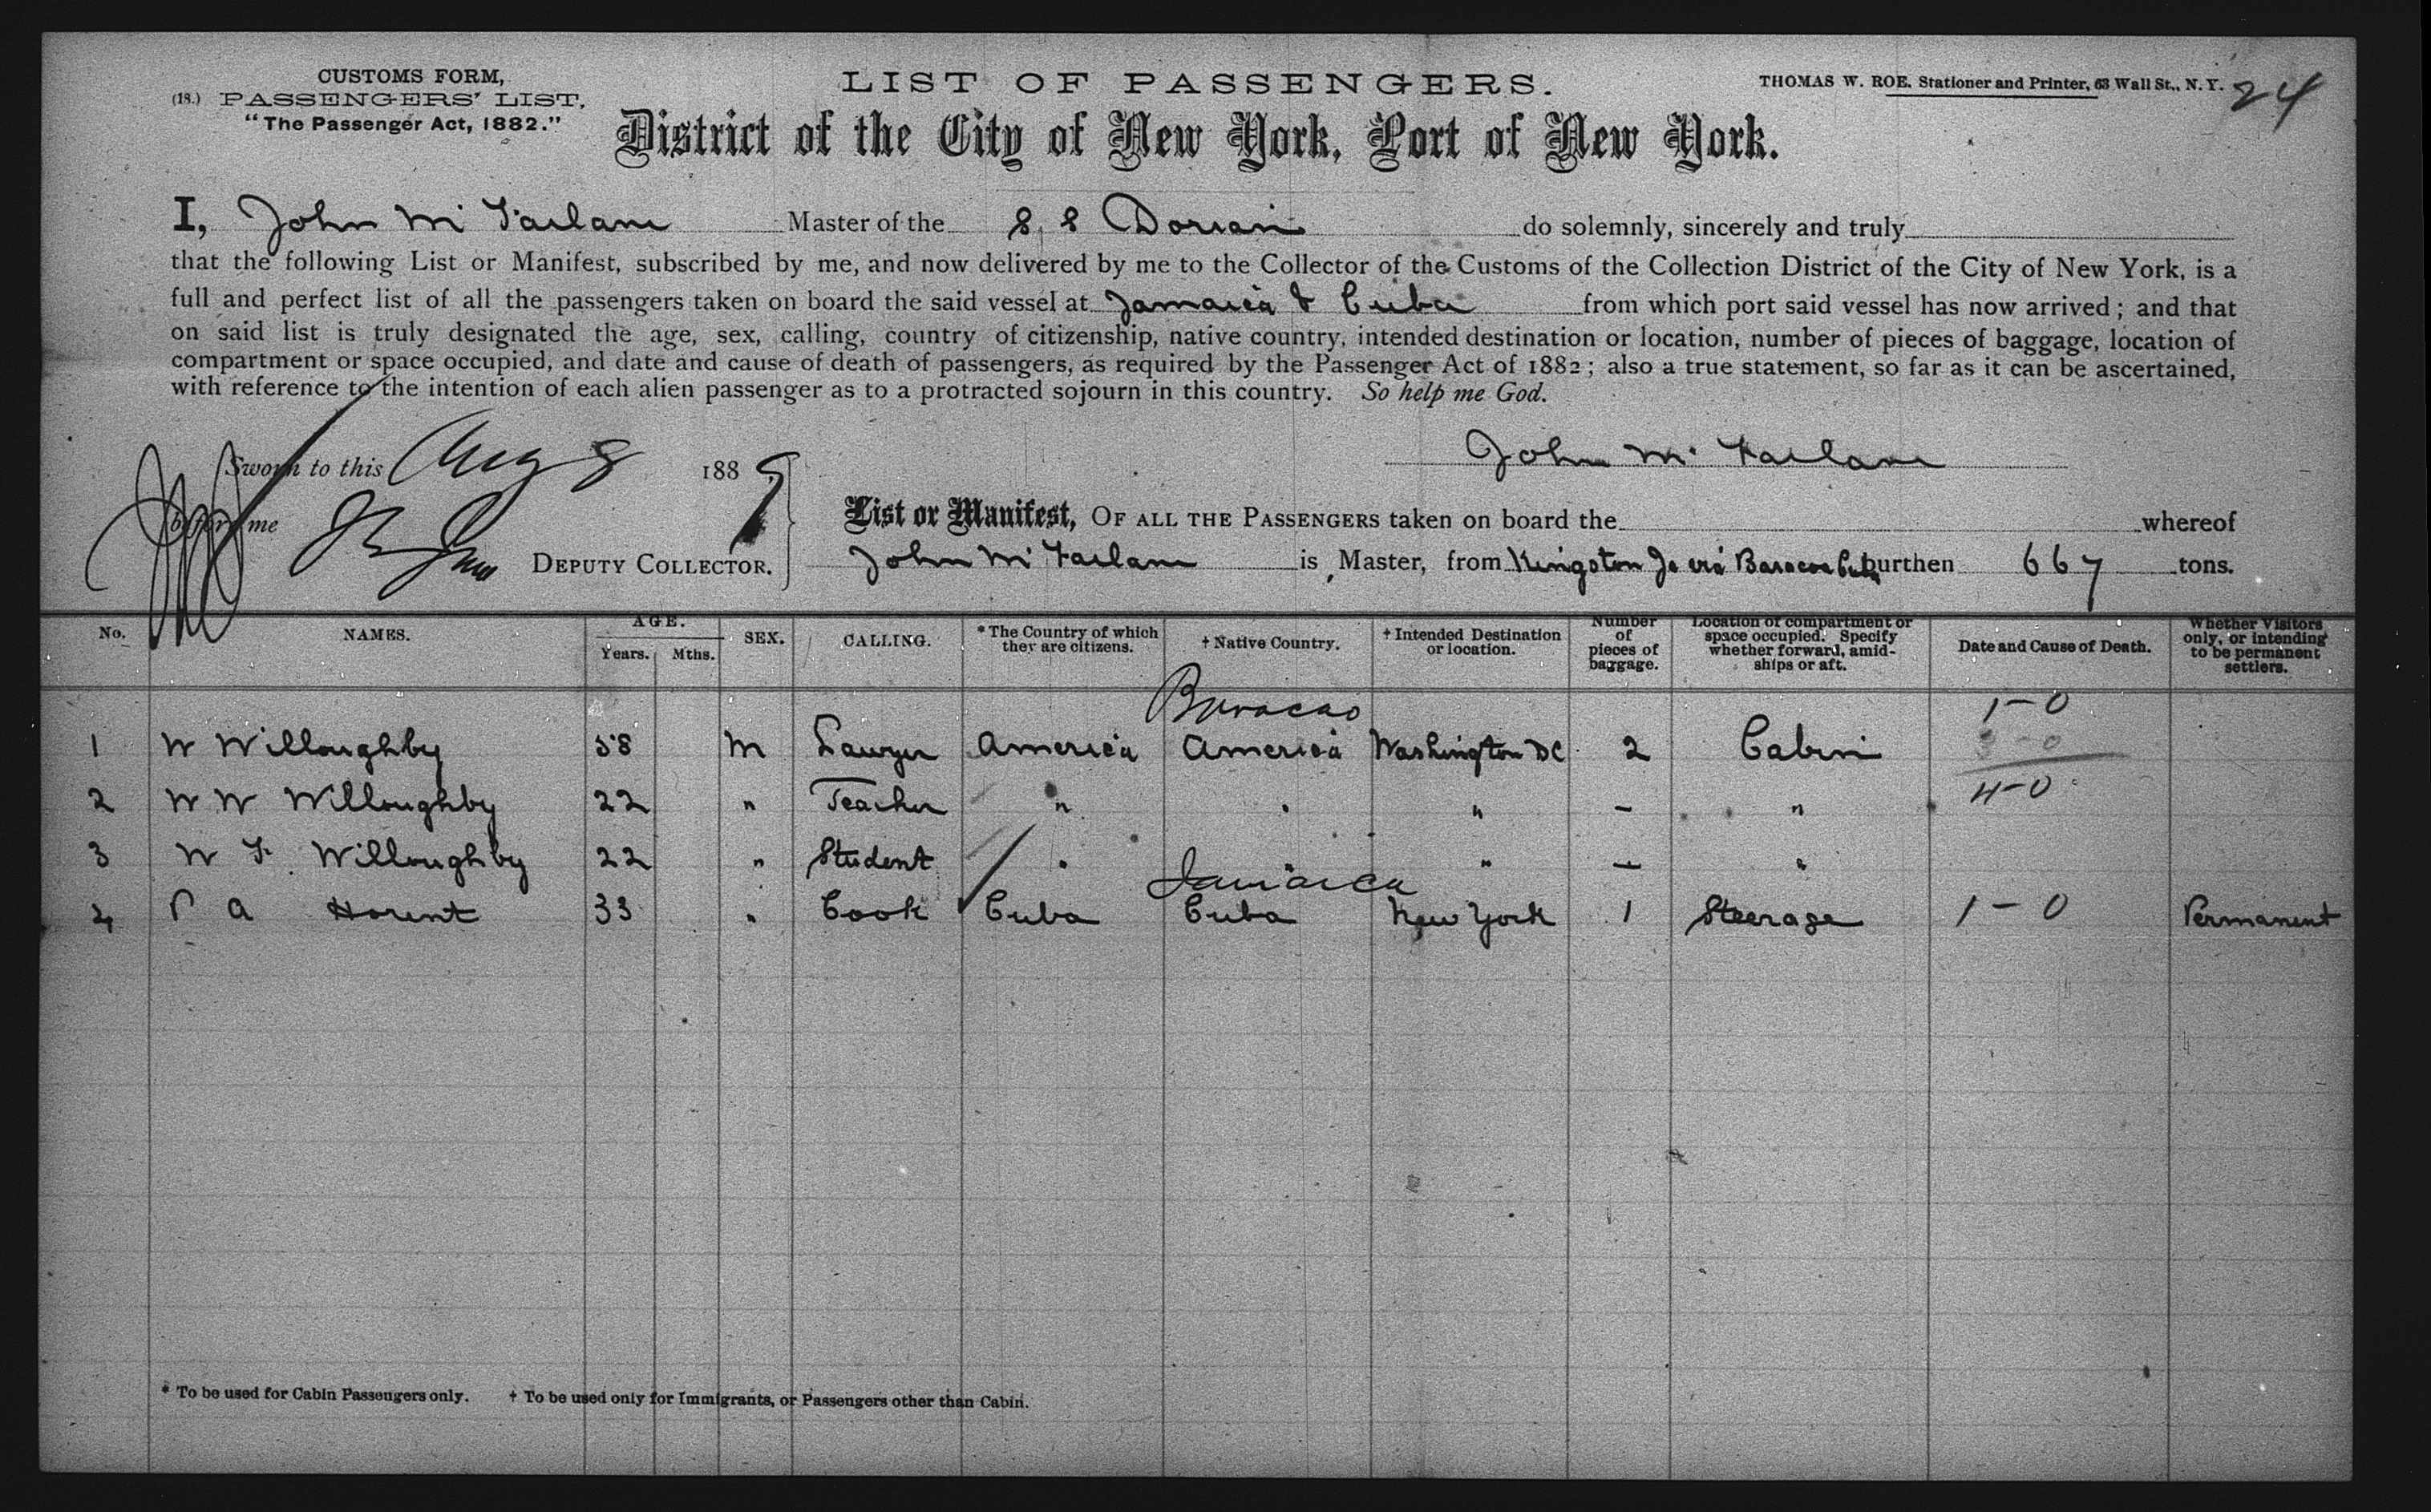 CUSTOMS FORM,
(18.) PASSENGERS' LIST,
"The Passenger Act, 1882."
LIST OF PASSENGERS.
THOMAS W. ROE. Stationer and Printer, 63 Wall St., N. Y.
24
District of the City of New York, Port of New York.
I, John Mc Farlane Master of the S. S Dorian do solemnly, sincerely and truly
that the following List or Manifest, subscribed by me, and now delivered by me to the Collector of the Customs of the Collection District of the City of New York, is a
full and perfect list of all the passengers taken on board the said vessel at Jamaica & Cuba from which port said vessel has now arrived; and that
on said list is truly designated the age, sex, calling, country of citizenship, native country, intended destination or location, number of pieces of baggage, location of
compartment or space occupied, and date and cause of death of passengers, as required by the Passenger Act of 1882; also a true statement, so far as it can be ascertained,
with reference to the intention of each alien passenger as to a protracted sojourn in this country. So help me God.
John Mc Farlane
Sworn to this Aug 8 1889
before me
DEPUTY COLLECTOR.
List or Manifest, OF ALL THE PASSENGERS taken on board the whereof
John Mc Farlane is Master, from Kingston Ja via Baracoa Cuba burthen 667 tons.
No. NAMES. AGE. Years. Mths. SEX. CALLING. * The Country of which they are citizens. † Native Country. † Intended Destination or location. Number of pieces of baggage. Location of compartment or space occupied. Specify whether forward, amidships or aft. Date and Cause of Death. Whether Visitors only, or intending to be permanent settlers.
Baracao 1-0
1 W Willoughby 58 M Lawyer America America Washington DC 2 Cabin 3-0
2 W W Willoughby 22 " Teacher " " " - " 4-0
3 W F. Willoughby 22 " Student " " " - "
Jamaica
4 P A Horent 33 " Cook Cuba Cuba New York 1 Steerage 1-0 Permanent
* To be used for Cabin Passengers only. † To be used only for Immigrants, or Passengers other than Cabin.